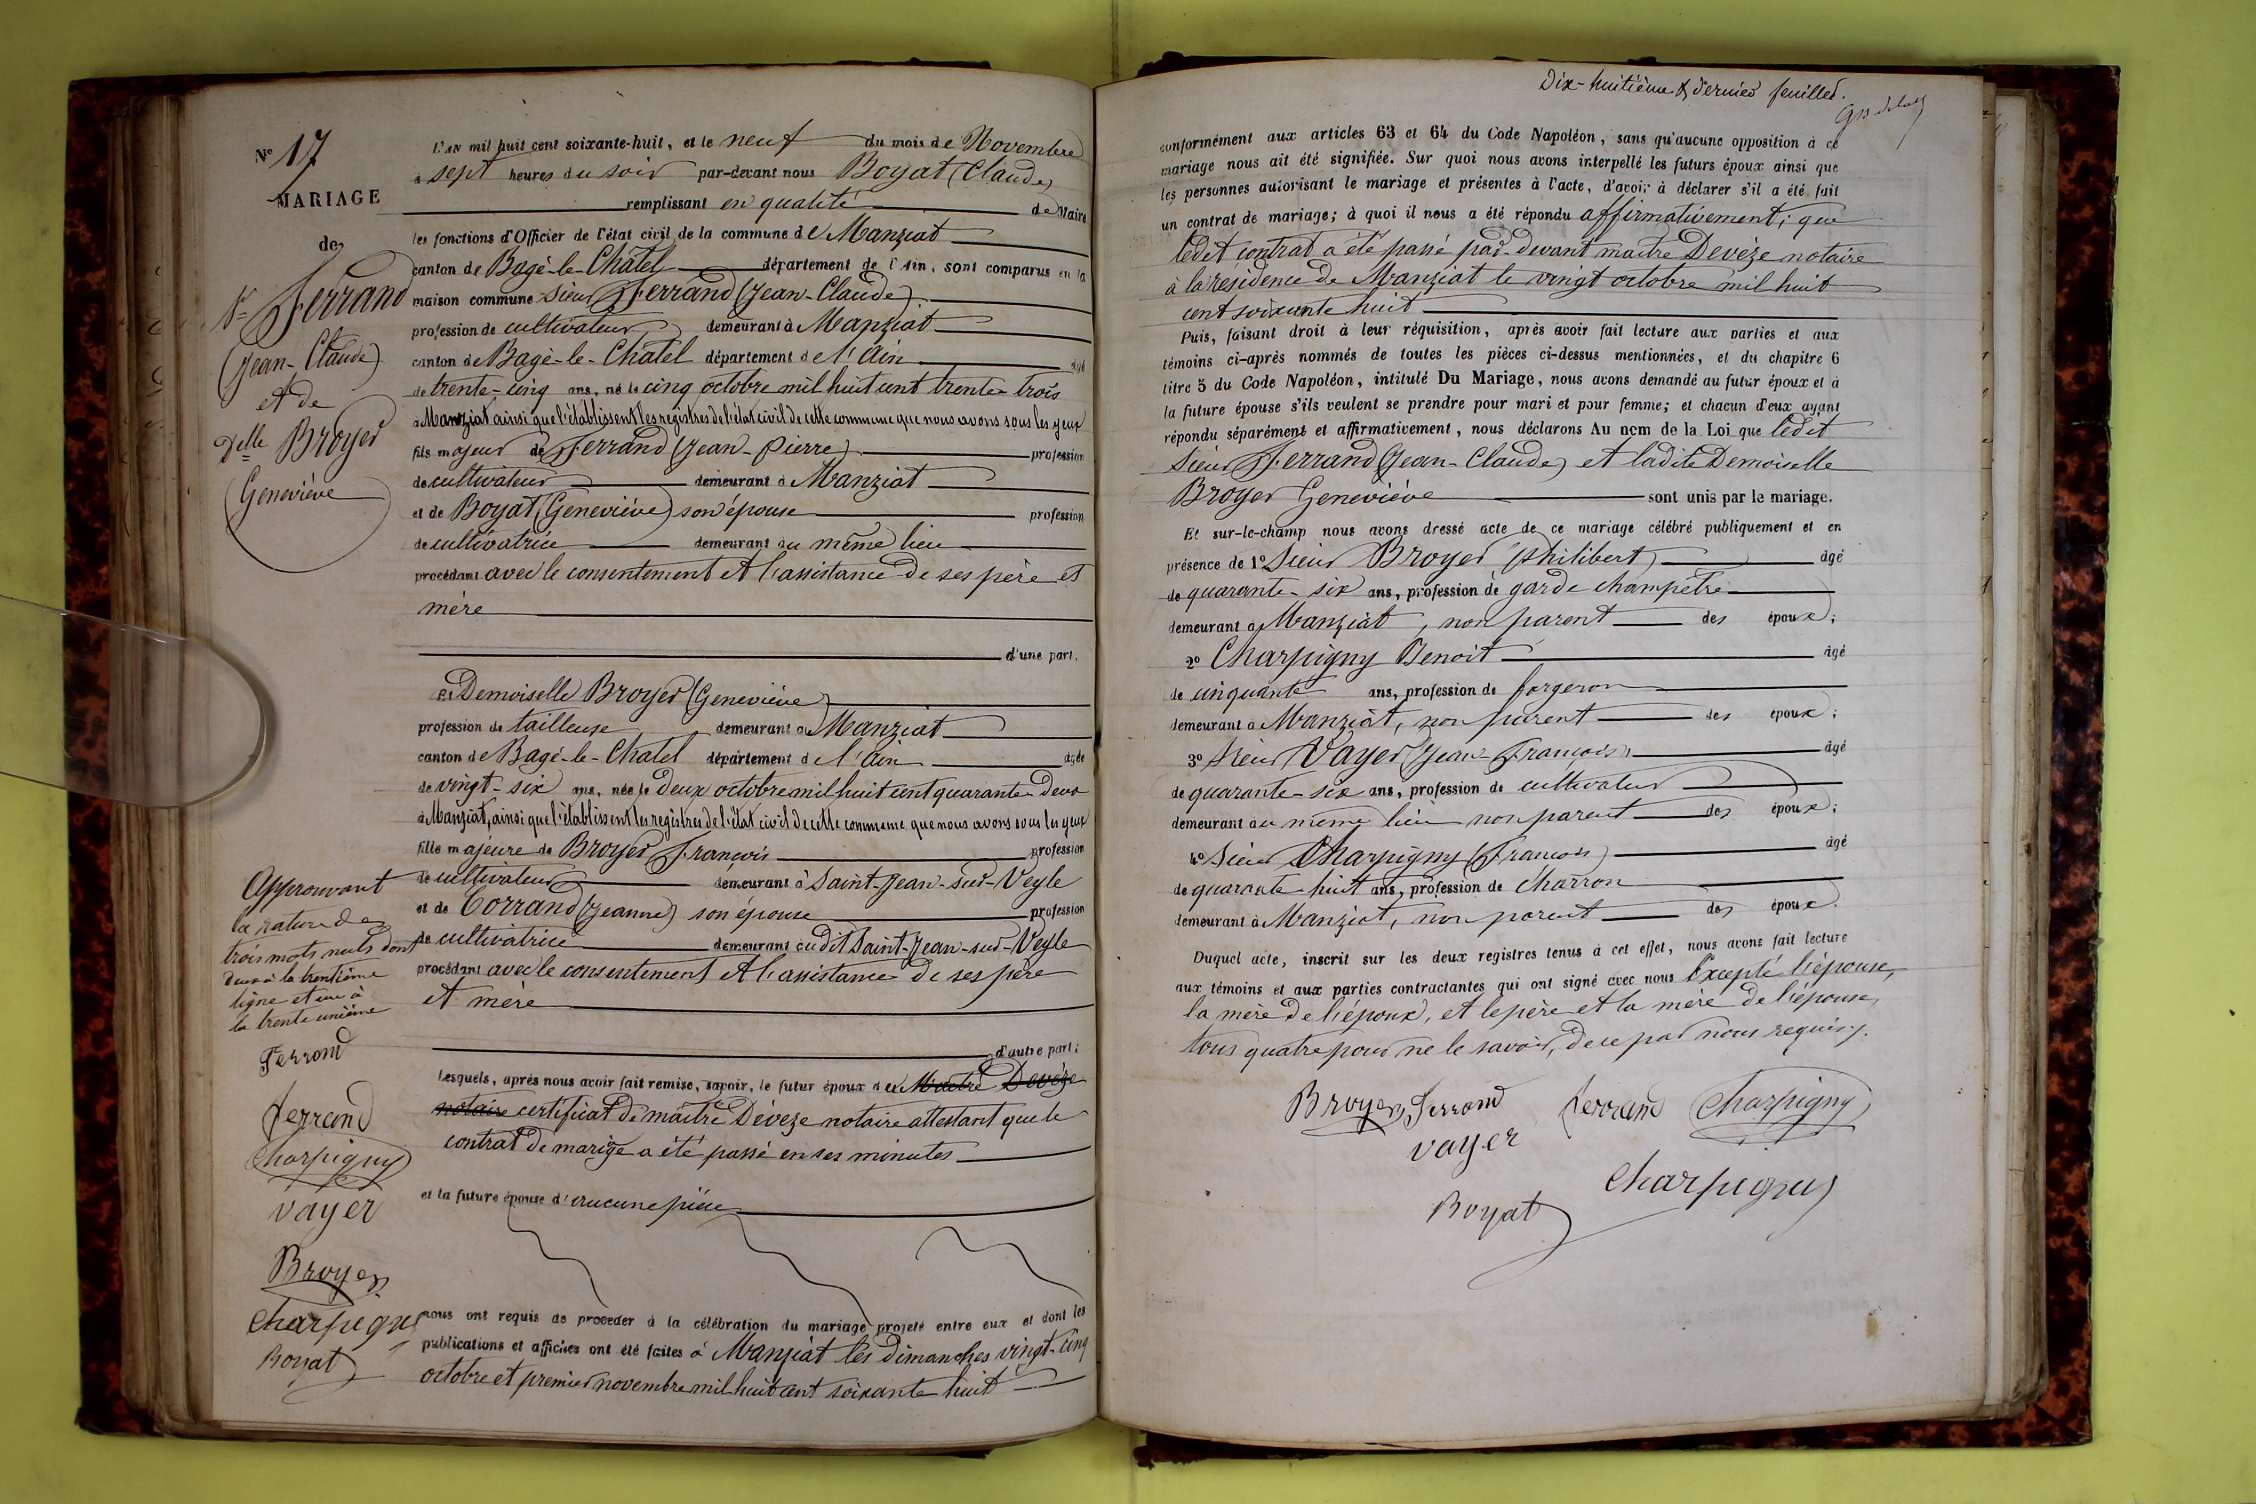 N° 17
MARIAGE
de
Sr Ferrand
(Jean-Claude)
et de
Delle Broyer
(Geneviève)
Approuvant
la rature de
trois mots nuls dont
deux à la trentième
ligne et un à
la trente unième
Ferrand
Ferrand
Charpigny
Vayer
Broyer
Charpigny
Boyat
L'AN mil huit cent soixante-huit, et le neuf du mois de Novembre
à sept heures du soir par-devant nous Boyat (Claude)
remplissant en qualité de Maire
les fonctions d'Officier de l'état civil de la commune de Manziat
canton de Bagé-le-Châtel département de l'Ain, sont comparus en la
maison commune sieur Ferrand (Jean-Claude)
profession de cultivateur demeurant à Manziat
canton de Bagé-le-Châtel département de l'Ain âgé
de trente-cinq ans, né le cinq octobre mil huit cent trente-trois
à Manziat ainsi que l'établissent les registres de l'état civil de cette commune que nous avons sous les yeux
fils majeur de Ferrand (Jean-Pierre) profession
de cultivateur demeurant à Manziat
et de Boyat (Geneviève) son épouse profession
de cultivatrice demeurant au même lieu
procédant avec le consentement et l'assistance de ses père et
mère
d'une part.
Et Demoiselle Broyer (Geneviève)
profession de tailleuse demeurant à Manziat
canton de Bagé-le-Chatel département de l'Ain âgée
de vingt-six ans, née le deux octobre mil huit cent quarante-deux
à Manziat, ainsi que l'établissent les registres de l'état civil de cette commune que nous avons sous les yeux
fille majeure de Broyer François profession
de cultivateur demeurant à Saint-Jean-sur-Veyle
et de Corrand (Jeanne) son épouse profession
de cultivatrice demeurant audit Saint-Jean-sur-Veyle
procédant avec le consentement et l'assistance de ses père
et mère
d'autre part;
Lesquels, après nous avoir fait remise, savoir, le futur époux de Maître Devèze
notaire certificat de maître Devèze notaire attestant que le
contrat de marige a été passé en ses minutes
et la future épouse d'aucune pièce
nous ont requis de procéder à la célébration du mariage projeté entre eux et dont les
publications et affiches ont été faites à Manziat les dimanches vingt-cinq
octobre et premier novembre mil huit cent soixante huit
Dix-huitième & dernier feuillet.
conformément aux articles 63 et 64 du Code Napoléon, sans qu'aucune opposition à ce
mariage nous ait été signifiée. Sur quoi nous avons interpellé les futurs époux ainsi que
les personnes autorisant le mariage et présentes à l'acte, d'avoir à déclarer s'il a été fait
un contrat de mariage; à quoi il nous a été répondu affirmativement; que
ledit contrat a été passé par-devant maître Devèze notaire
à la résidence de Manziat le vingt octobre mil huit
cent soixante huit
Puis, faisant droit à leur réquisition, après avoir fait lecture aux parties et aux
témoins ci-après nommés de toutes les pièces ci-dessus mentionnées, et du chapitre 6
titre 5 du Code Napoléon, intitulé Du Mariage, nous avons demandé au futur époux et à
la future épouse s'ils veulent se prendre pour mari et pour femme; et chacun d'eux ayant
répondu séparément et affirmativement, nous déclarons Au nom de la Loi que ledit
sieur Ferrand (Jean-Claude) et ladite Demoiselle
Broyer Geneviève sont unis par le mariage.
Et sur-le-champ nous avons dressé acte de ce mariage célébré publiquement et en
présence de 1° Sieur Broyer (Philibert) âgé
de quarante-six ans, profession de garde champêtre
demeurant à Manziat, non parent des époux;
2° Charpigny Benoit âgé
de cinquante ans, profession de forgeron
demeurant à Manziat, non parent des époux;
3° Sieur Vayer (Jean-François) âgé
de quarante-six ans, profession de cultivateur
demeurant au même lieu non parent des époux;
4° Sieur Charpigny (François) âgé
de quarante-huit ans, profession de charron
demeurant à Manziat, non parent des époux.
Duquel acte, inscrit sur les deux registres tenus à cet effet, nous avons fait lecture
aux témoins et aux parties contractantes qui ont signé avec nous Excepté l'épouse,
la mère de l'époux, et le père et la mère de l'épouse,
tous quatre pour ne le savoir, de ce par nous requis.
Broyer Ferrand Ferrand Charpigny
Vayer
Charpigny
Boyat